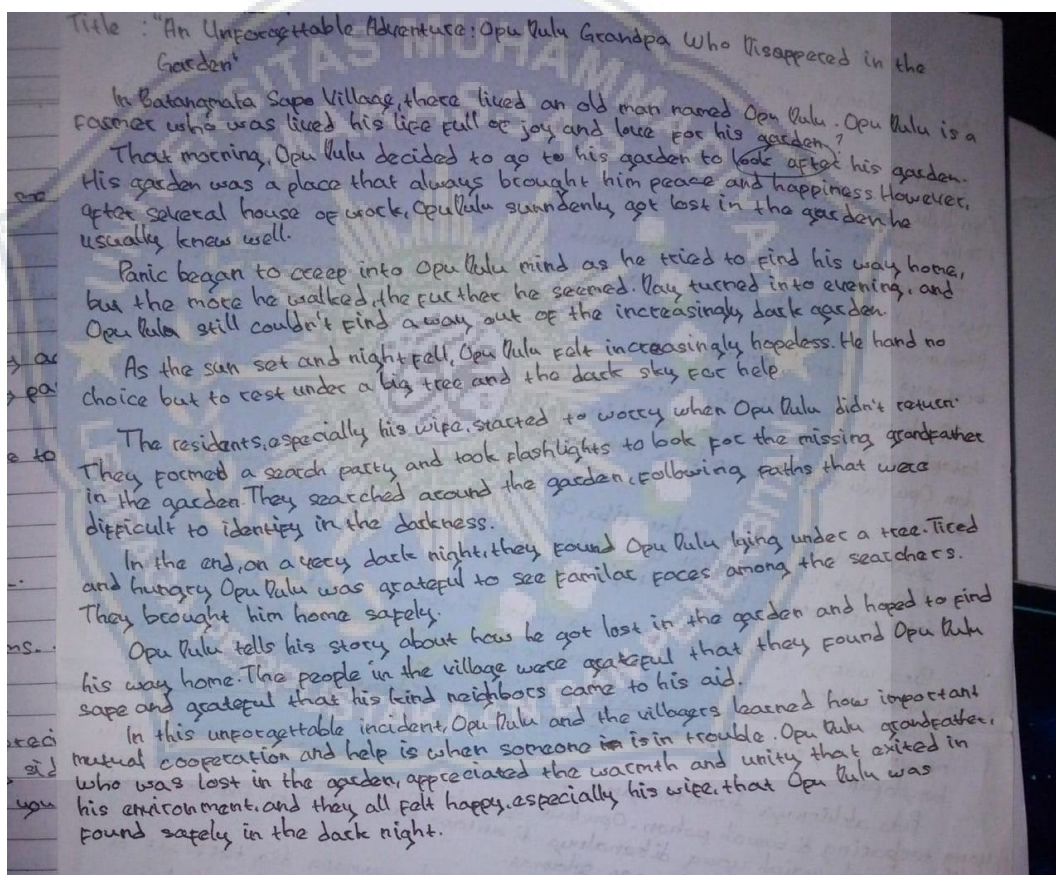 Title : "An Unforgettable Adventure: Opu Dulu Grandpa Who Disappered in the
Garden"
In Batangmata Sapo Village, there lived an old man named Opu Dulu. Opu Dulu is a
Farmer who was lived his life full of joy and love for his garden?
That morning, Opu Dulu decided to go to his garden to look after his garden.
His garden was a place that always brought him peace and happiness However,
after several house of work, Opu Dulu sunndenly got lost in the garden he
usually knew well.
Panic began to creep into Opu Dulu mind as he tried to find his way home,
but the more he walked, the further he seemed. Day turned into evening, and
Opu Dulu still couldn't find a way out of the increasingly dark garden
As the sun set and night fell, Opu Dulu felt increasingly hopeless. He hand no
choice but to rest under a big tree and the dark sky for help
The residents, especially his wife, started to worry when Opu Dulu didn't return.
They formed a search party and took flashlights to look for the missing grandfather
in the garden. They searched around the garden, following paths that were
difficult to identify in the darkness.
In the end, on a very dark night, they found Opu Dulu lying under a tree. Tired
and hungry Opu Dulu was grateful to see familar faces among the searchers.
They brought him home safely.
Opu Dulu tells his story about how he got lost in the garden and hoped to find
his way home. The people in the village were grateful that they found Opu Dulu
safe and grateful that his kind neighbors came to his aid.
In this unforgettable incident, Opu Dulu and the villagers learned how important
mutual cooperation and help is when someone is in trouble. Opu Dulu grandfather,
who was lost in the garden, appreciated the warmth and unity that exited in
his environment, and they all felt happy, especially his wife, that Opu Dulu was
found safely in the dark night.